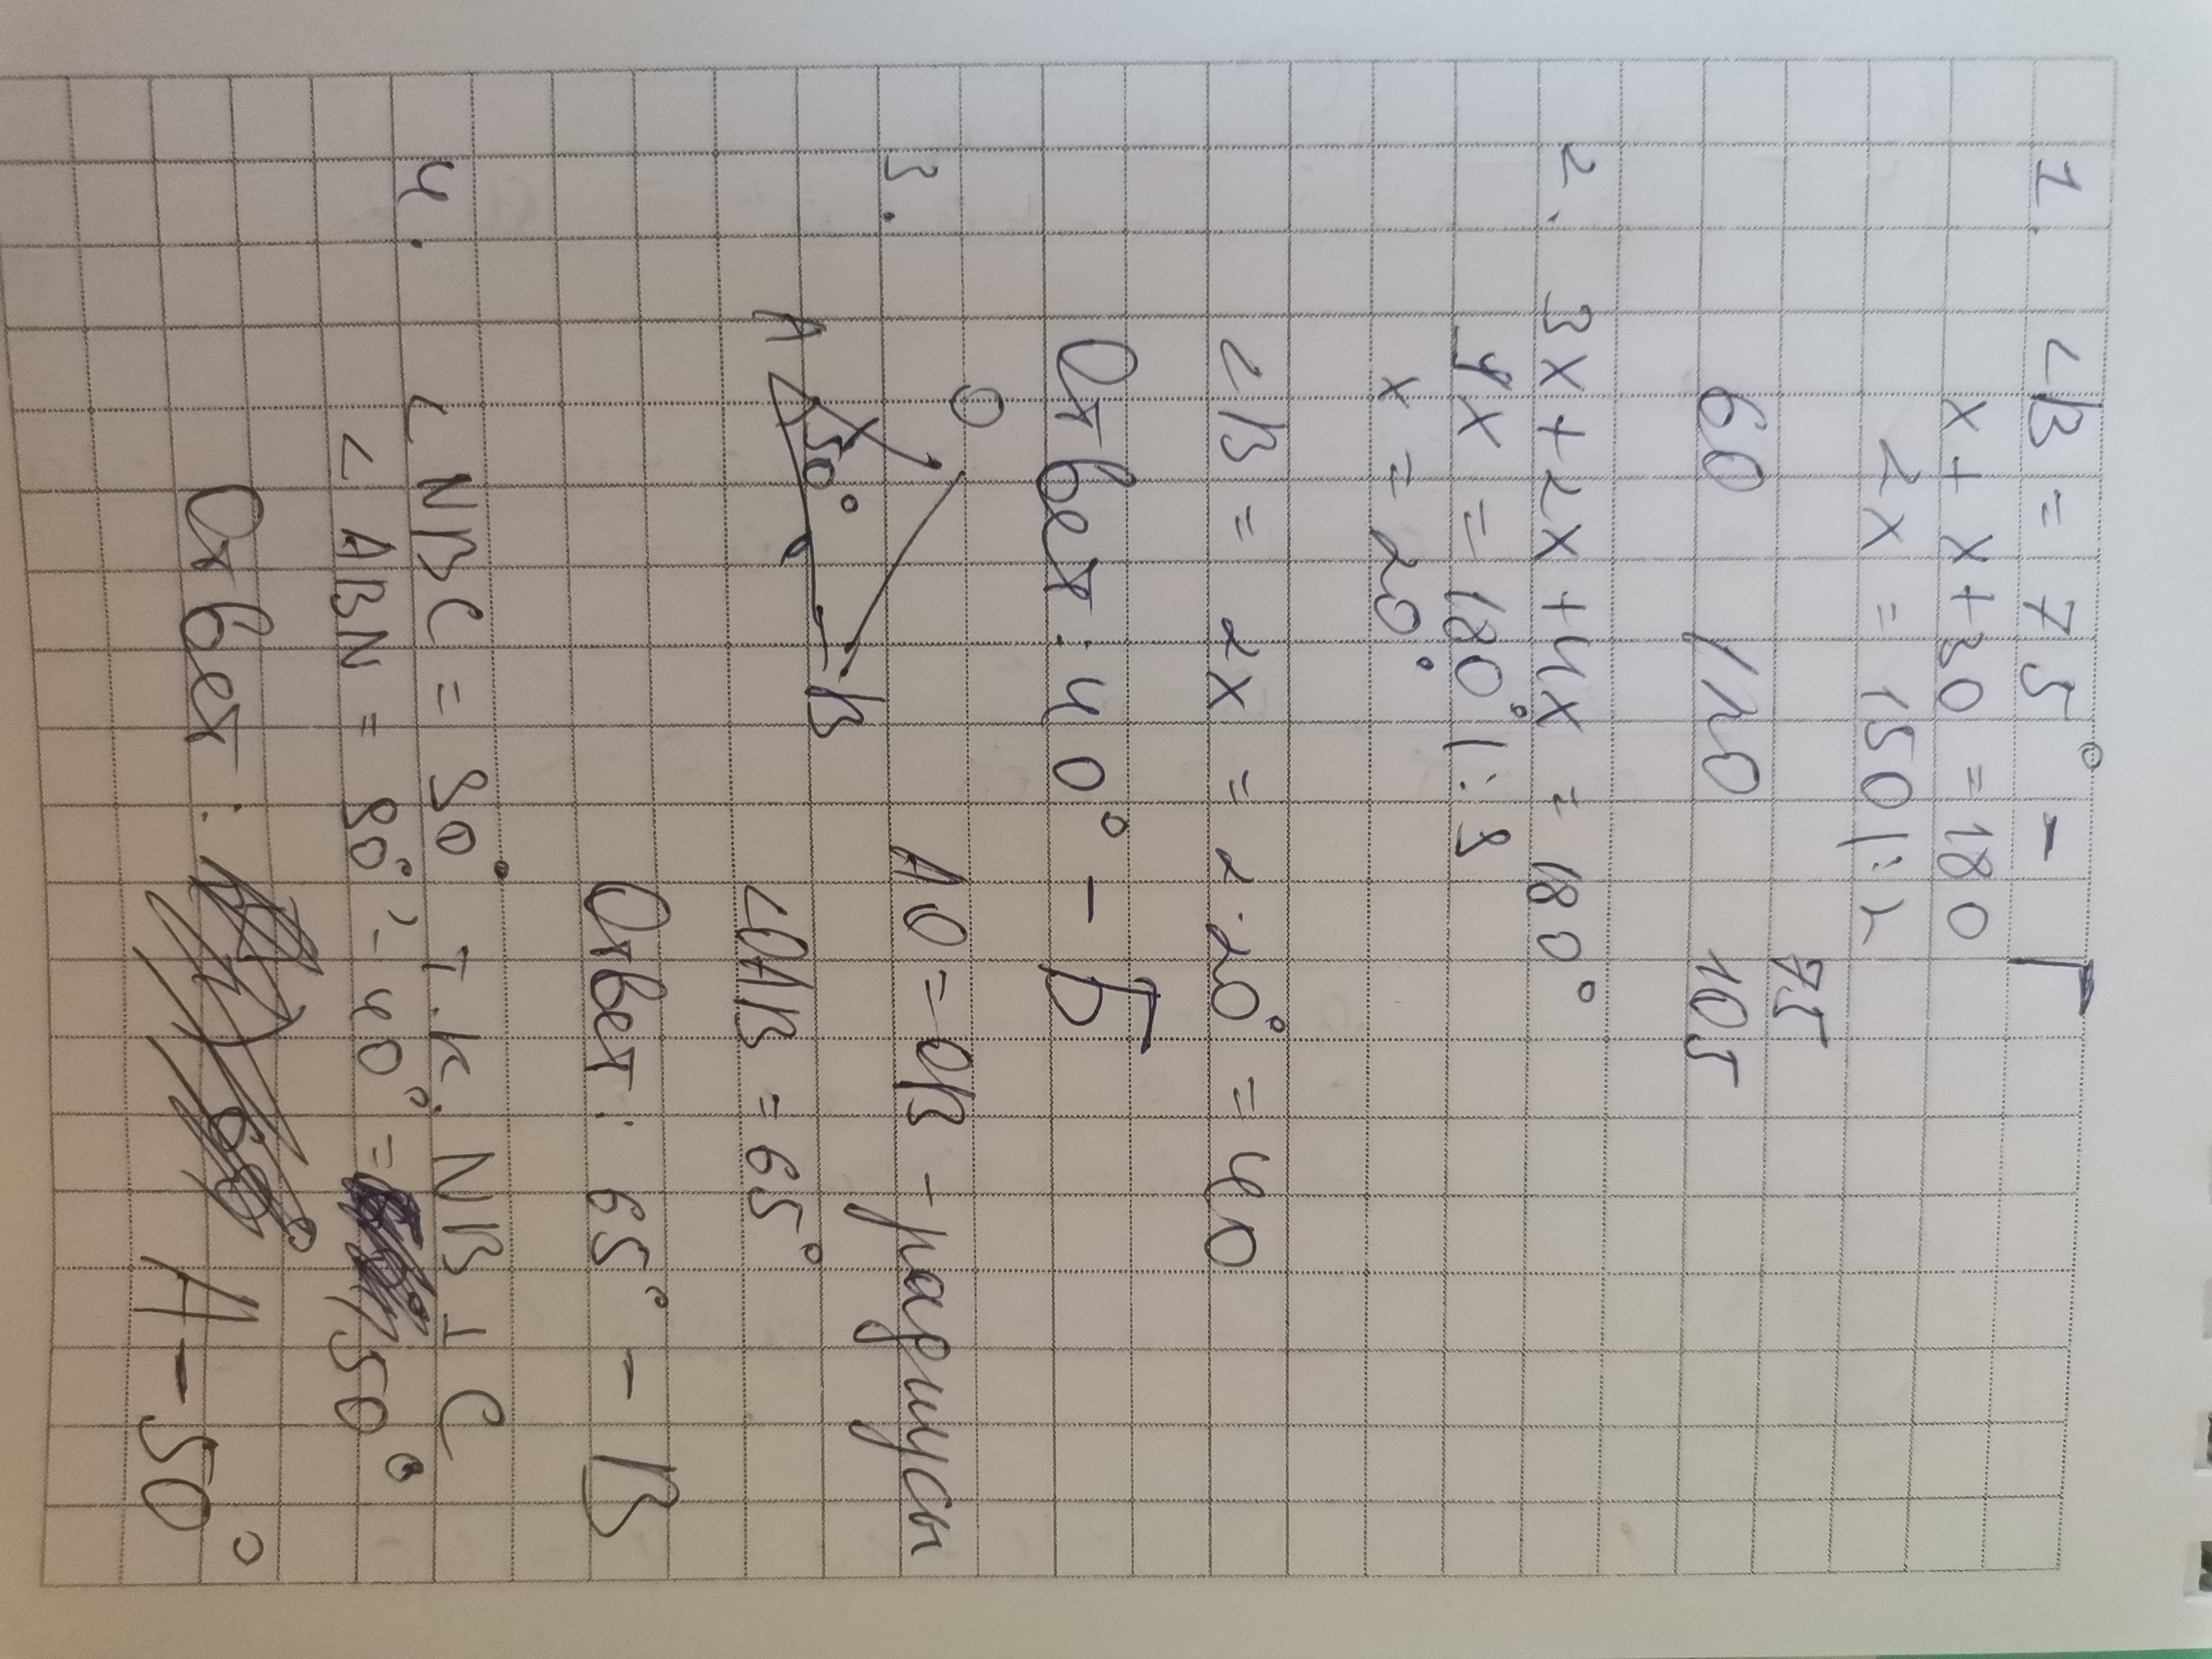 1. ∠B = 75° - Г
x + x + 30 = 180
2x = 150 |:2
75
60 120 105
2. 3x + 2x + 4x = 180°
9x = 180° |:9
x = 20°
∠B = 2x = 2·20° = 40
Ответ: 40° - Б
3. O A 50° B
AO = OB - радиусы
∠OAB = 65°
Ответ: 65° - В
4. ∠NBC = 90° т.к. NB ⊥ C
∠ABN = 90° - 40° = 50°
Ответ: A - 50°